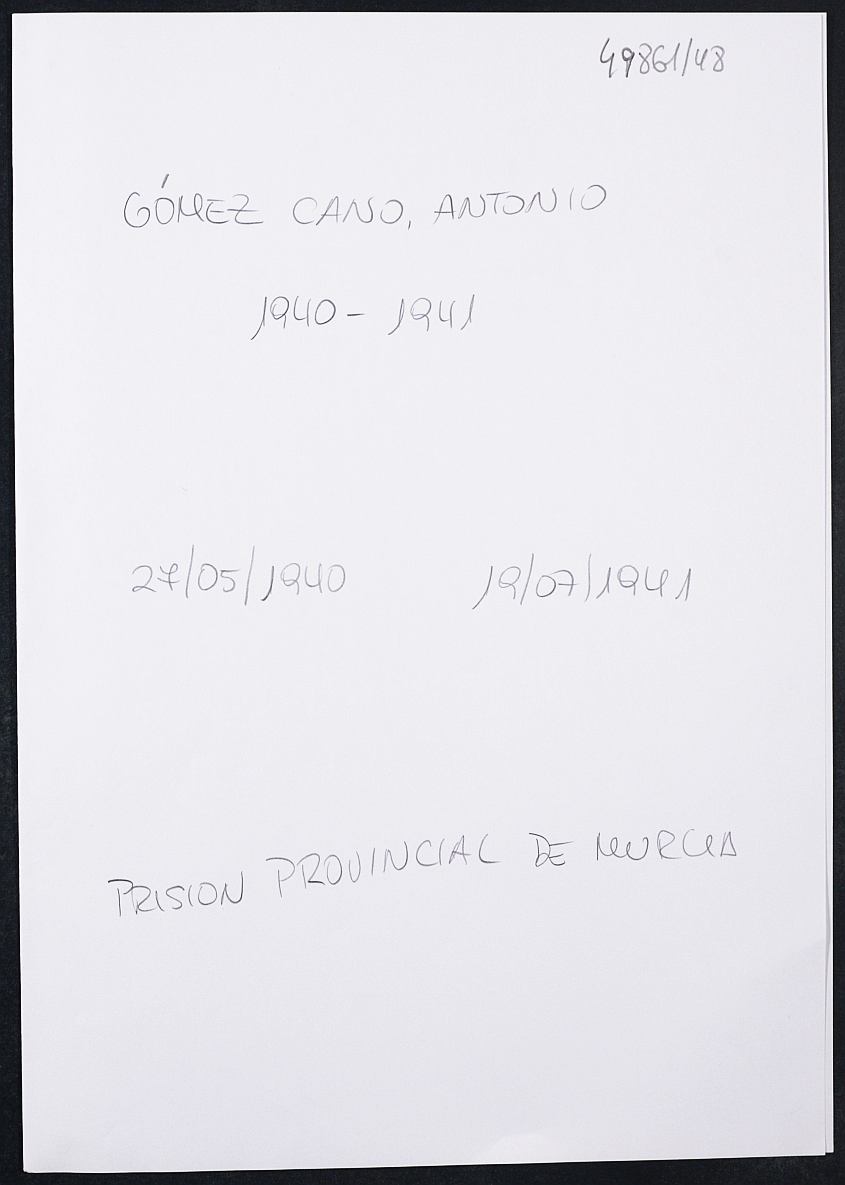 49861/48
GÓMEZ CANO, ANTONIO
1940 - 1941
27/05/1940 19/07/1941
PRISION PROVINCIAL DE MURCIA